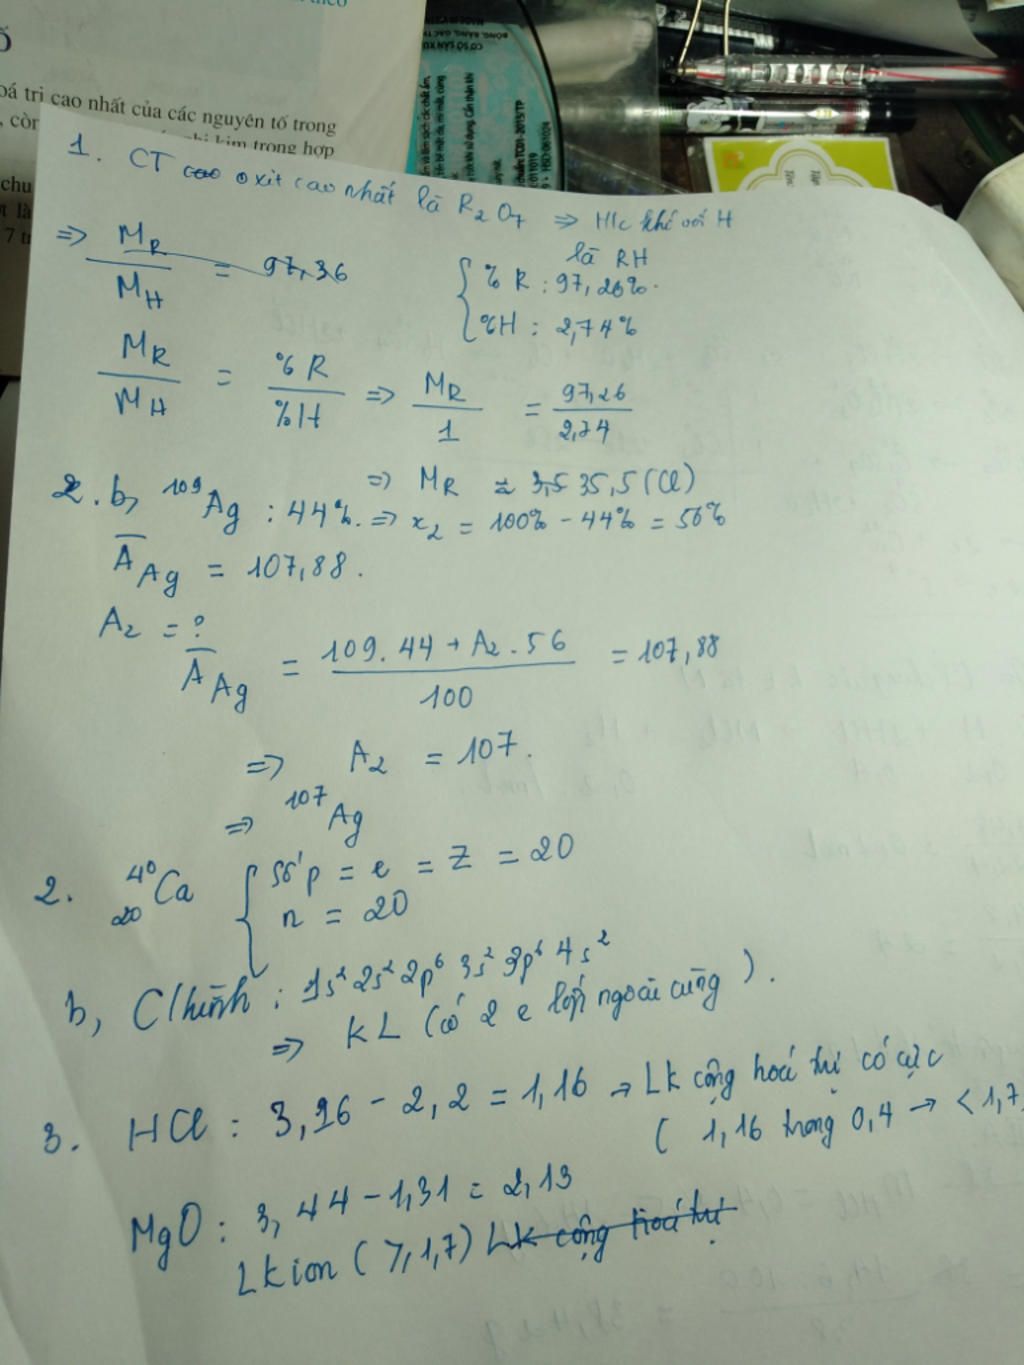 oá trị cao nhất của các nguyên tố trong
, còn
phi kim trong hợp
CƠ SỞ SẢN XU
1. CT cao oxit cao nhất là R₂O₇ ⇒ H/c khí với H
là RH
⇒ M_R / M_H = 97,36
{ % R : 97,26%.
%H : 2,74%
M_R / M_H = % R / % H ⇒ M_R / 1 = 97,26 / 2,74
⇒ M_R ≈ 3,5 35,5 (Cl)
2. b, ¹⁰⁹Ag : 44%. ⇒ x₂ = 100% - 44% = 56%
A̅_Ag = 107,88.
A₂ = ?
A̅_Ag = (109.44 + A₂.56) / 100 = 107,88
⇒ A₂ = 107.
⇒ ¹⁰⁷Ag
2. ⁴⁰₂₀Ca { số p = e = Z = 20
n = 20
b, C/hình : 1s² 2s² 2p⁶ 3s² 3p⁶ 4s²
⇒ KL (có 2 e lớp ngoài cùng).
3. HCl : 3,96 - 2,2 = 1,16 → Lk cộng hoá trị có cực
( 1,16 trong 0,4 → < 1,7
MgO : 3,44 - 1,31 = 2,13
Lk ion ( ⩾ 1,7) Lk cộng hoá trị